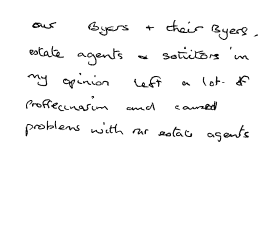 our Byers + their Byers,
estate agents & solicitors in
my opinion left a lot of
proffecinarism and caused
problems with our estate agents